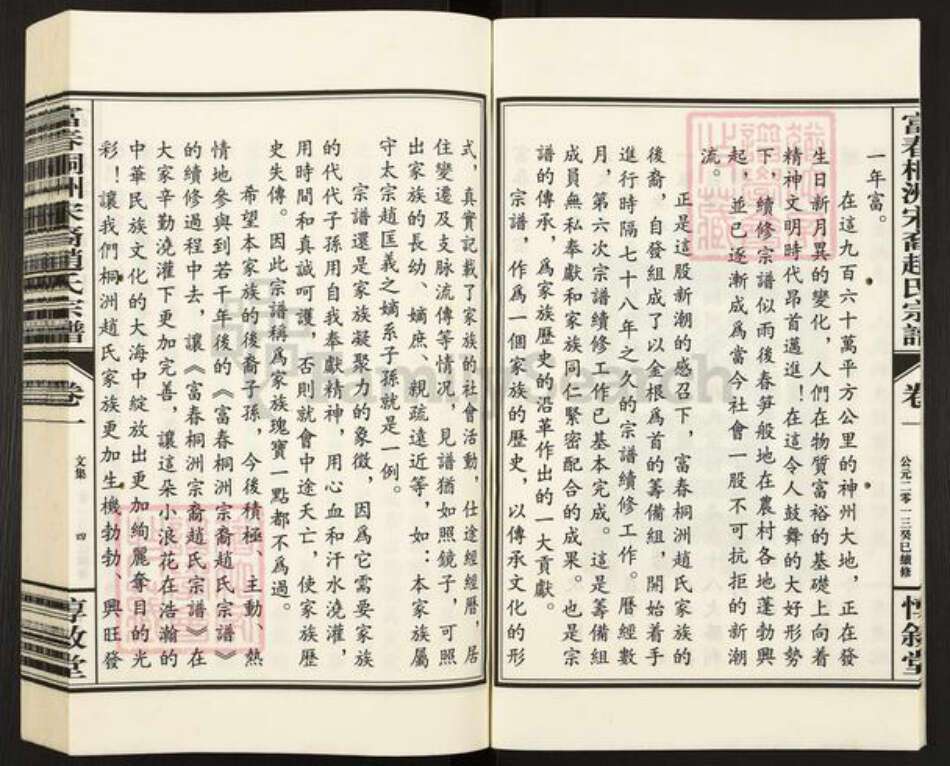 富春桐洲宋裔趙氏宗譜
卷一
公元二零一三癸巳續修
惇敘堂
一年富。
在這九百六十萬平方公里的神州大地，正在發
生日新月異的變化，人們在物質富裕的基礎上向着
精神文明時代昂首邁進！在這令人鼓舞的大好形勢
下，續修宗譜似雨後春笋般地在農村各地蓬勃興
起，並已逐漸成爲當今社會一股不可抗拒的新潮
流。
正是這股新潮的感召下，富春桐洲趙氏家族的
後裔，自發組成了以金根爲首的籌備組，開始着手
進行時隔七十八年之久的宗譜續修工作。曆經數
月，第六次宗譜續修工作已基本完成。這是籌備組
成員無私奉獻和家族同仁緊密配合的成果。也是宗
譜的傳承，爲家族歷史的沿革作出的一大貢獻。
宗譜，作爲一個家族的歷史，以傳承文化的形
式，真實記載了家族的社會活動，仕途經曆，居
住變遷及支脉流傳等情况，見譜猶如照鏡子，可照
出家族的長幼、嫡庶、親疏遠近等，如：本家族屬
守太宗趙匡義之嫡系子孫就是一例。
宗譜還是家族凝聚力的象徵，因爲它需要家族
的代代子孫用自我奉獻精神，用心血和汗水澆灌，
用時間和真誠呵護，否則就會中途夭亡，使家族歷
史失傳。因此宗譜稱爲家族瑰寶一點都不爲過。
希望本家族的後裔子孫，今後積極、主動、熱
情地參與到若干年後的《富春桐洲宗裔趙氏宗譜》
的續修過程中去，讓《富春桐洲宗裔趙氏宗譜》在
大家辛勤澆灌下更加完善，讓這朵小浪花在浩瀚的
中華民族文化的大海中綻放出更加絢麗奪目的光
彩！讓我們桐洲趙氏家族更加生機勃勃、興旺發
富春桐洲宋裔趙氏宗譜
卷一
文集
四
惇敘堂
FamilySearch